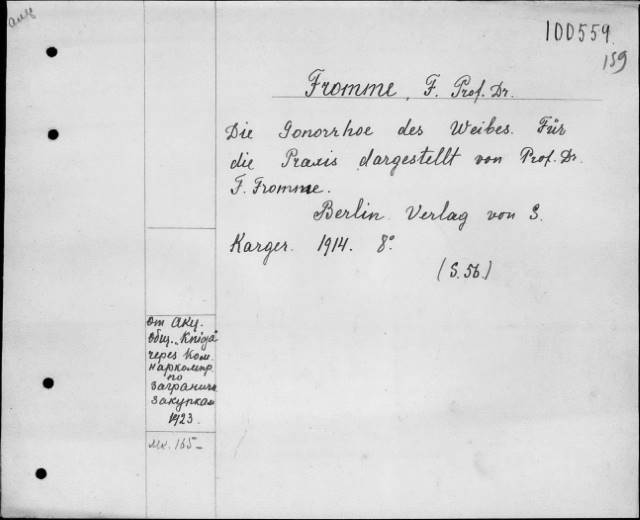 100559
159
Fromme, F. Prof. Dr.
Die Gonorrhoe des Weibes. Für
die Praxis dargestellt von Prof. Dr.
F. Fromme.
Berlin. Verlag von S.
Karger. 1914. 8°
(S. 56.)
от акц.
общ. „Kniga"
через Ком.
наркомпр.
по
заграничн.
закупкам
1923.
Мк. 165-